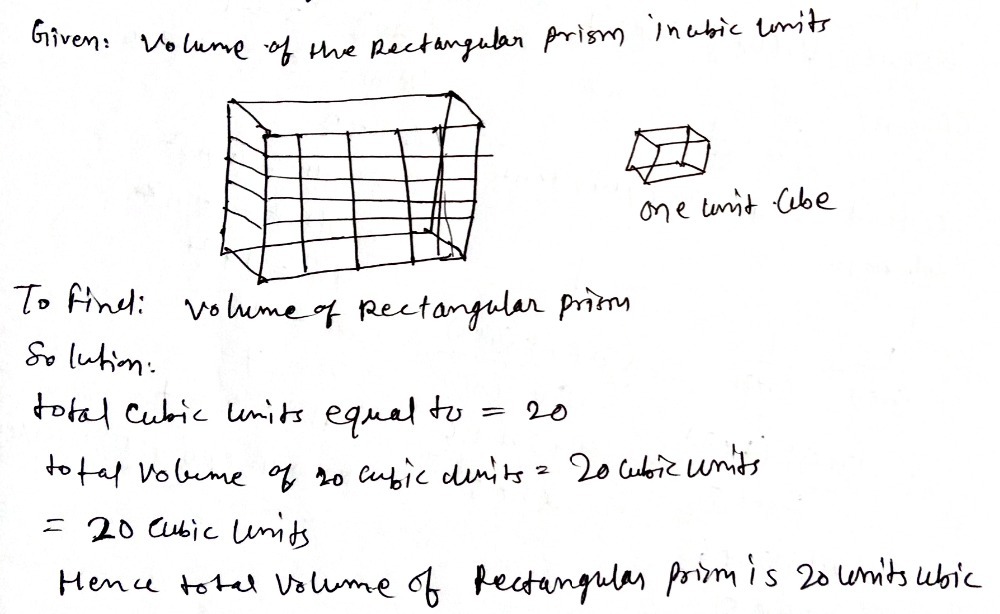 Given: Volume of the Rectangular prism in cubic units
one unit cube
To find: Volume of Rectangular prism
Solution:
total cubic units equal to = 20
total volume of 20 cubic units = 20 cubic units
= 20 cubic units
Hence total volume of Rectangular prism is 20 units cubic